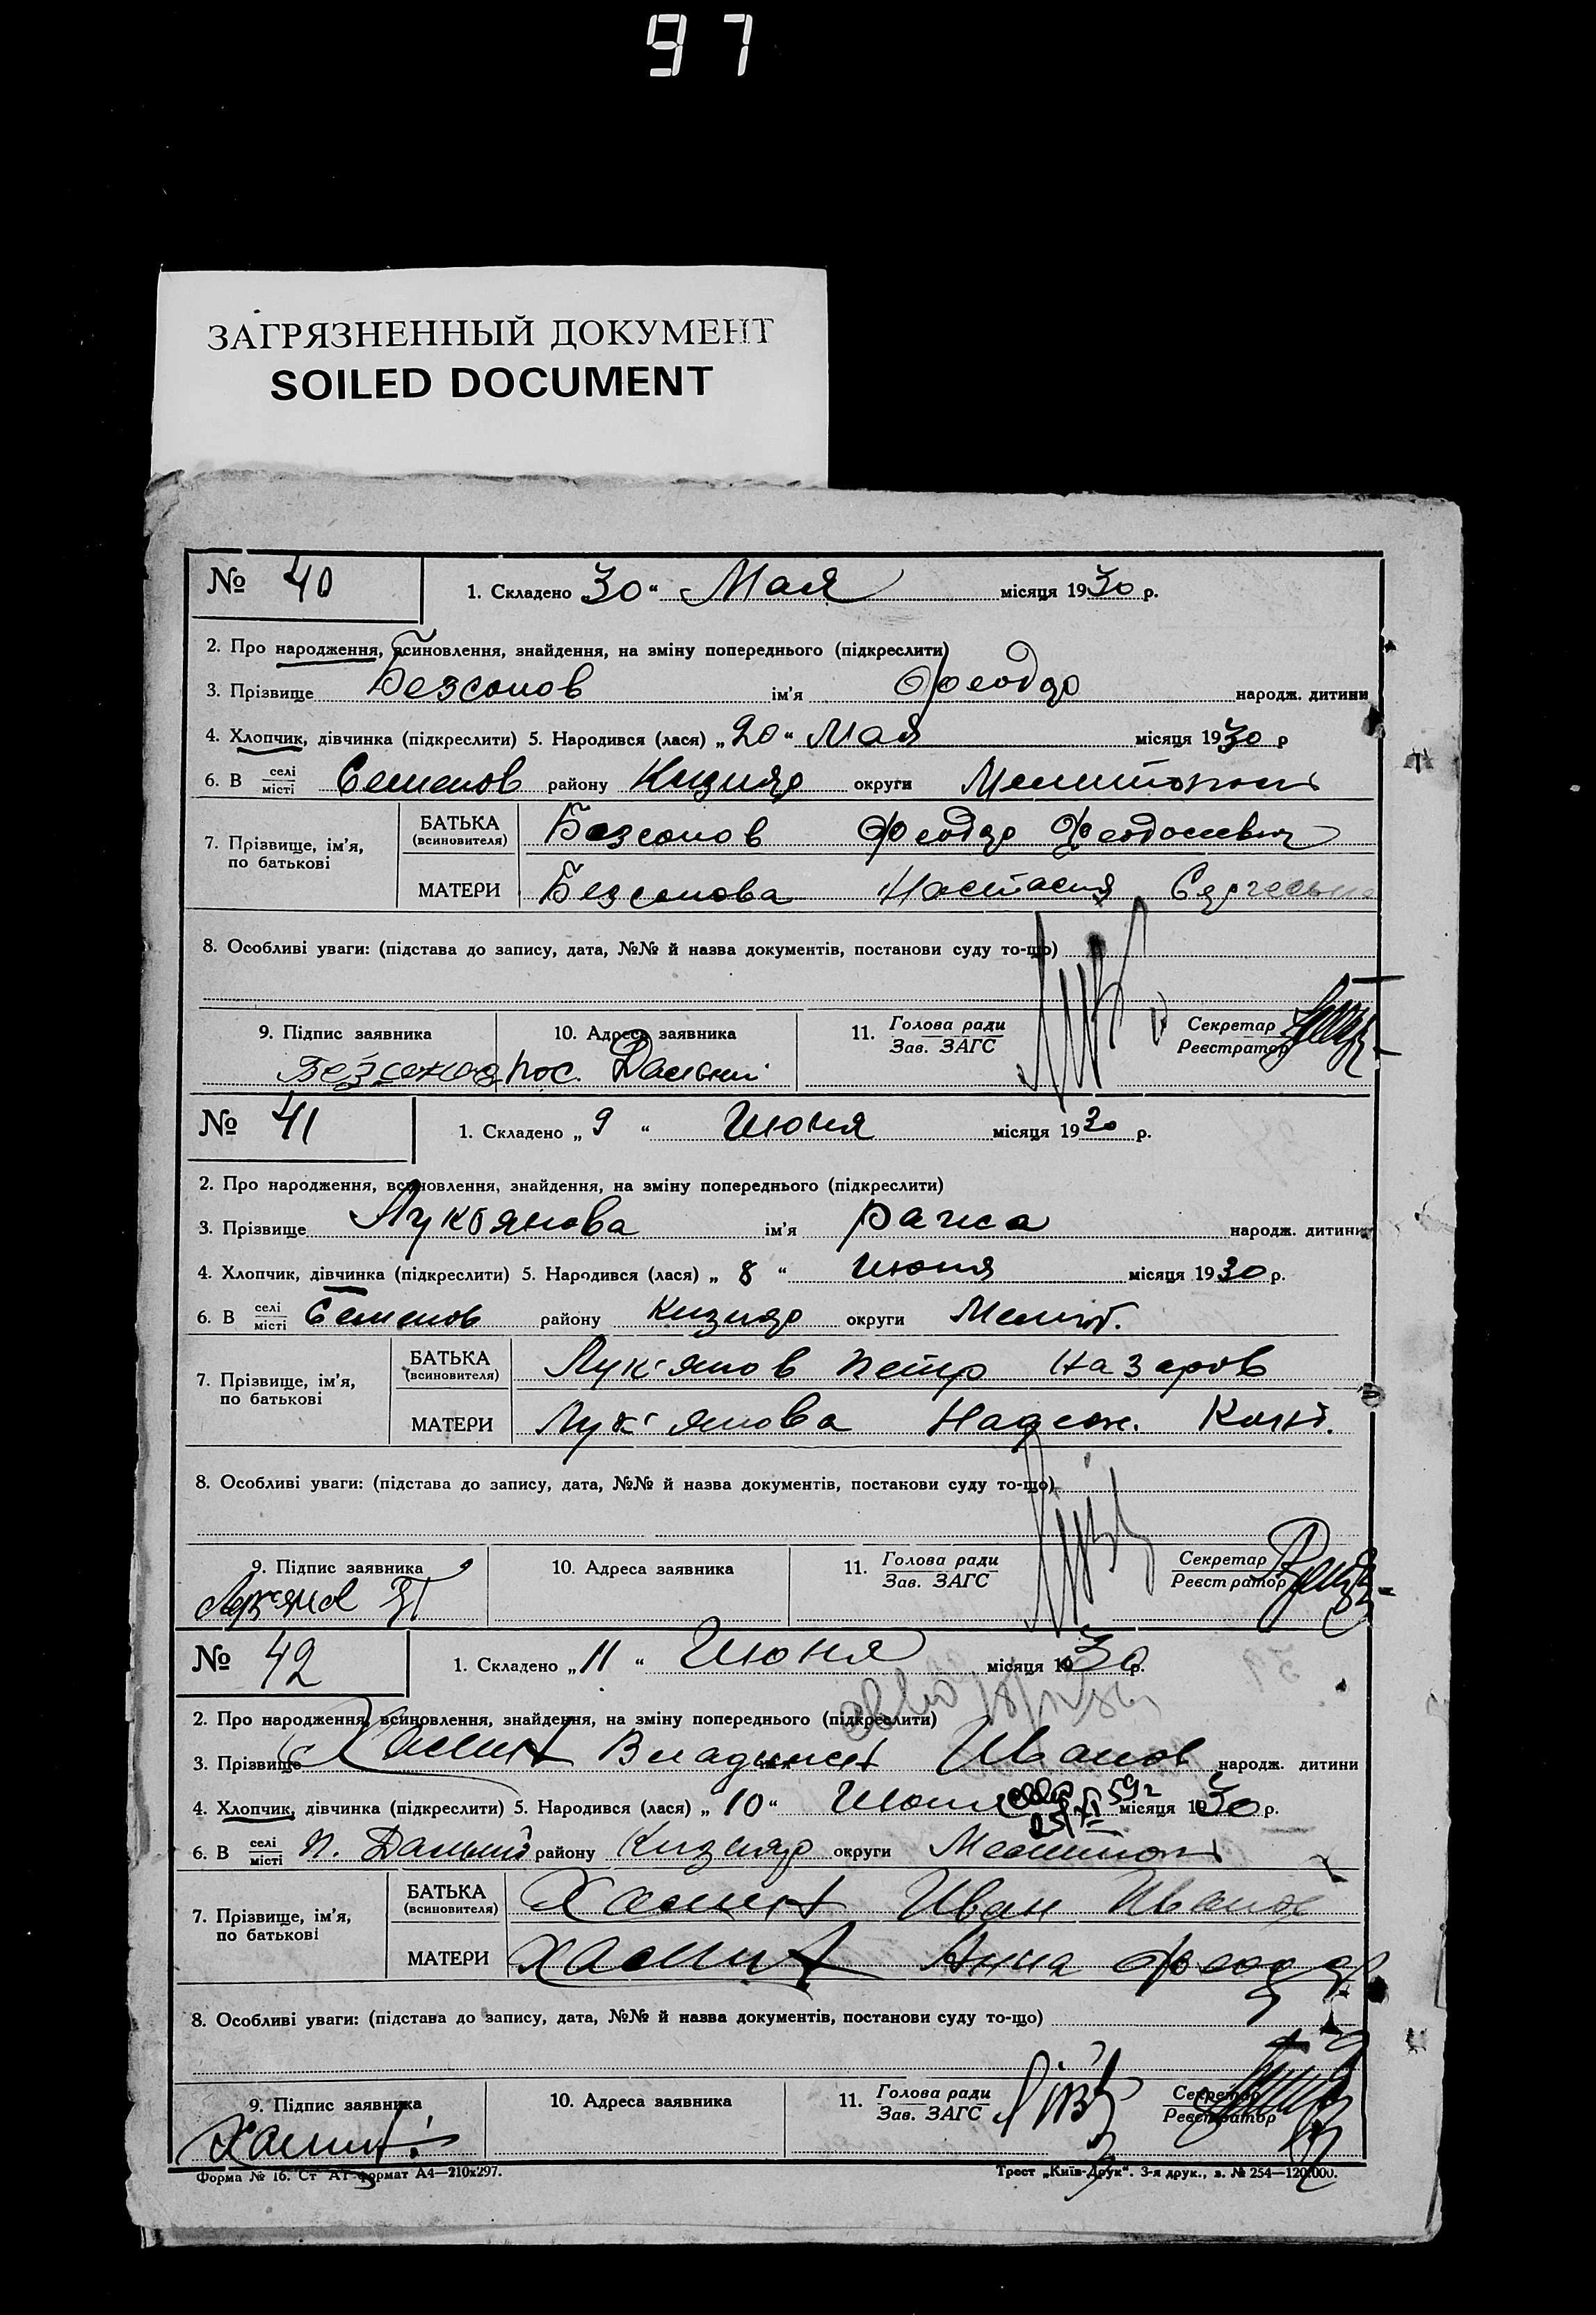 97
ЗАГРЯЗНЕННЫЙ ДОКУМЕНТ
SOILED DOCUMENT
№ 40 1. Складено 30 “ Мая місяця 1930 р.
2. Про народження, всиновлення, знайдення, на зміну попереднього (підкреслити)
3. Прізвище Безсонов ім'я Феодор народж. дитини
4. Хлопчик, дівчинка (підкреслити) 5. Народився (лася) „ 20 “ Мая місяця 1930 р
6. В селі місті Семенов району Кизияр округи
7. Прізвище, ім'я, по батькові БАТЬКА (всиновителя) Безсонов Феодор Феодосиевич
МАТЕРИ Безсонова Настасия
8. Особливі уваги: (підстава до запису, дата, №№ й назва документів, постанови суду то-що)
9. Підпис заявника 10. Адреса заявника 11. Голова ради Зав. ЗАГС Секретар Реєстратор
пос. Дальний
№ 41 1. Складено „ 9 “ Июня місяця 1930 р.
2. Про народження, всиновлення, знайдення, на зміну попереднього (підкреслити)
3. Прізвище Лукьянова ім'я раиса народж. дитини
4. Хлопчик, дівчинка (підкреслити) 5. Народився (лася) „ 8 “ Июня місяця 1930 р.
6. В селі місті Семенов району Кизияр округи Мелит.
7. Прізвище, ім'я, по батькові БАТЬКА (всиновителя) Лук'янов Петр Назаров
МАТЕРИ Лук'янова Надеж. Конт.
8. Особливі уваги: (підстава до запису, дата, №№ й назва документів, постанови суду то-що)
9. Підпис заявника 10. Адреса заявника 11. Голова ради Зав. ЗАГС Секретар Реєстратор
№ 42 1. Складено „ 11 “ Июня місяця 1930 р.
2. Про народження, всиновлення, знайдення, на зміну попереднього (підкреслити)
3. Прізвище Владимир Иванов народж. дитини
4. Хлопчик, дівчинка (підкреслити) 5. Народився (лася) „ 10 “ Июня місяця 1930 р.
6. В селі місті п. Дальний району Кизияр округи
7. Прізвище, ім'я, по батькові БАТЬКА (всиновителя) Иван Иванов
МАТЕРИ Анна
8. Особливі уваги: (підстава до запису, дата, №№ й назва документів, постанови суду то-що)
9. Підпис заявника 10. Адреса заявника 11. Голова ради Зав. ЗАГС Секретар Реєстратор
Форма № 16. Ст АТ формат А4—210x297. Трест „Київ-Друк“. 3-я друк., з. № 254—120.000.